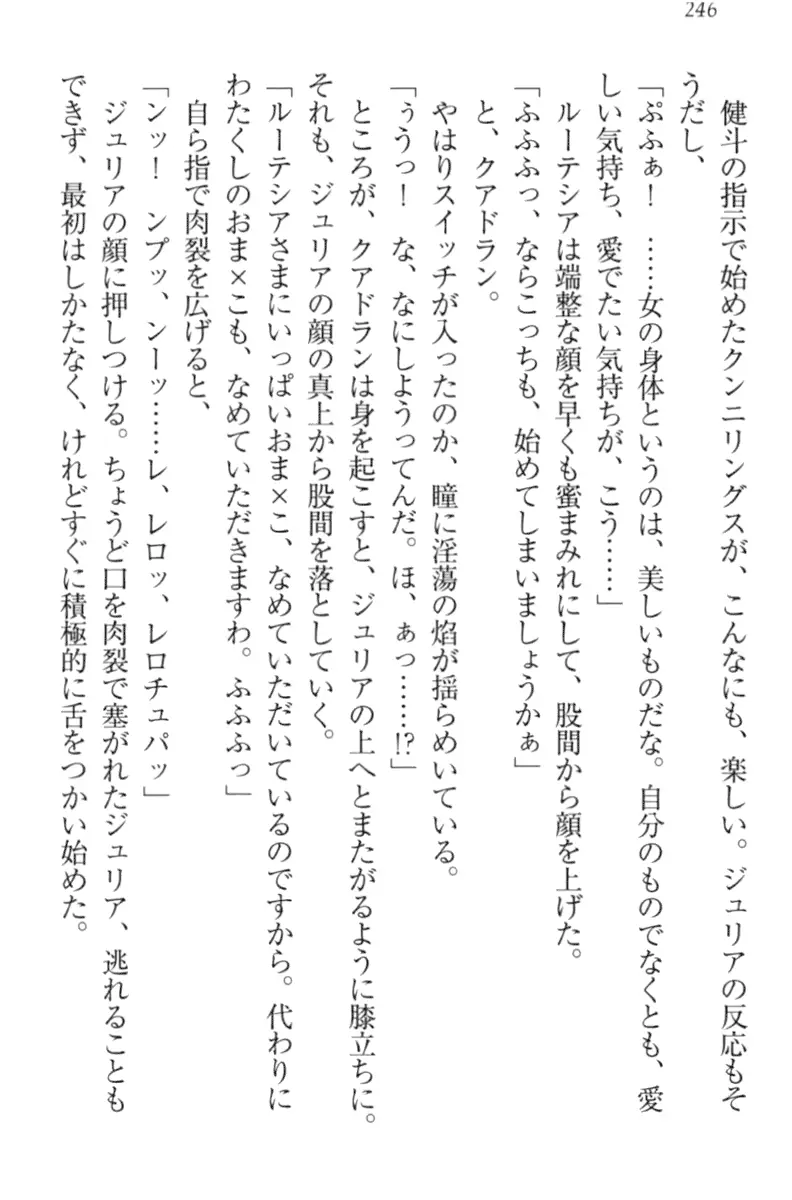 246
健斗の指示で始めたクンニリングスが、こんなにも、楽しい。ジュリアの反応もそ
うだし、
「ぷふぁ！　……女の身体というのは、美しいものだな。自分のものでなくとも、愛
しい気持ち、愛でたい気持ちが、こう……」
ルーテシアは端整な顔を早くも蜜まみれにして、股間から顔を上げた。
「ふふふっ、ならこっちも、始めてしまいましょうかぁ」
と、クアドラン。
やはりスイッチが入ったのか、瞳に淫蕩の焔が揺らめいている。
「ぅうっ！　な、なにしようってんだ。ほ、ぁっ……!?」
ところが、クアドランは身を起こすと、ジュリアの上へとまたがるように膝立ちに。
それも、ジュリアの顔の真上から股間を落としていく。
「ルーテシアさまにいっぱいおま×こ、なめていただいているのですから。代わりに
わたくしのおま×こも、なめていただきますわ。ふふふっ」
自ら指で肉裂を広げると、
「ンッ！　ンプッ、ンーッ……レ、レロッ、レロチュパッ」
ジュリアの顔に押しつける。ちょうど口を肉裂で塞がれたジュリア、逃れることも
できず、最初はしかたなく、けれどすぐに積極的に舌をつかい始めた。